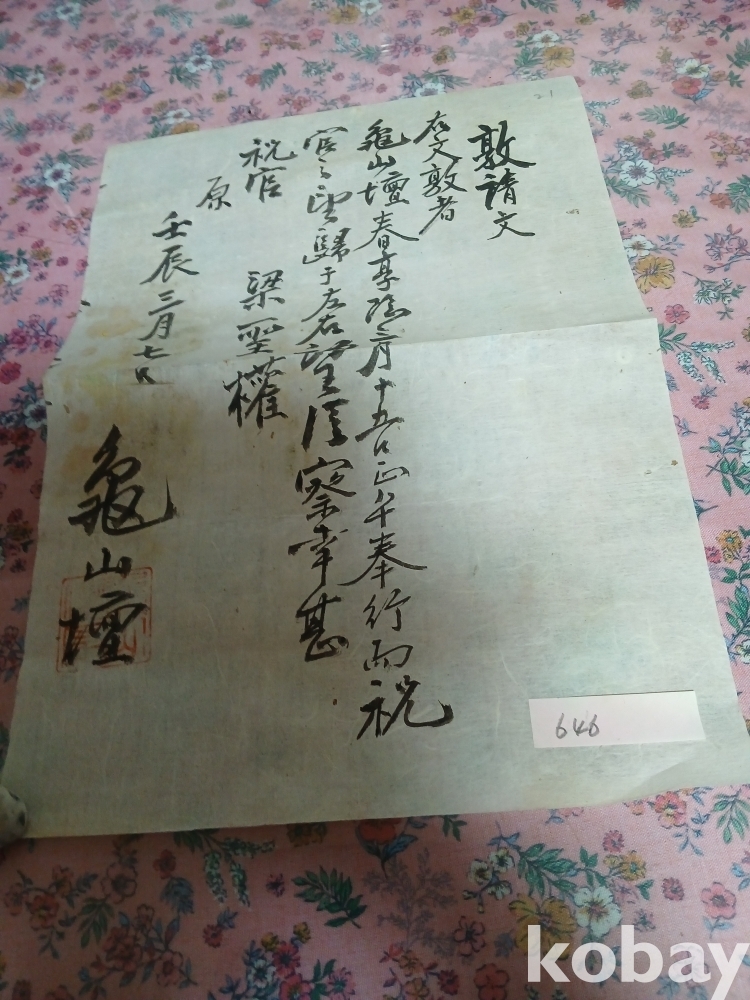 敦請文
右文敦者
龜山壇春享陰三月十五日正午奉行而祝
官之望歸于左右望須察幸甚
祝官 梁聖權
原
壬辰三月七日
龜山壇
646
kobay